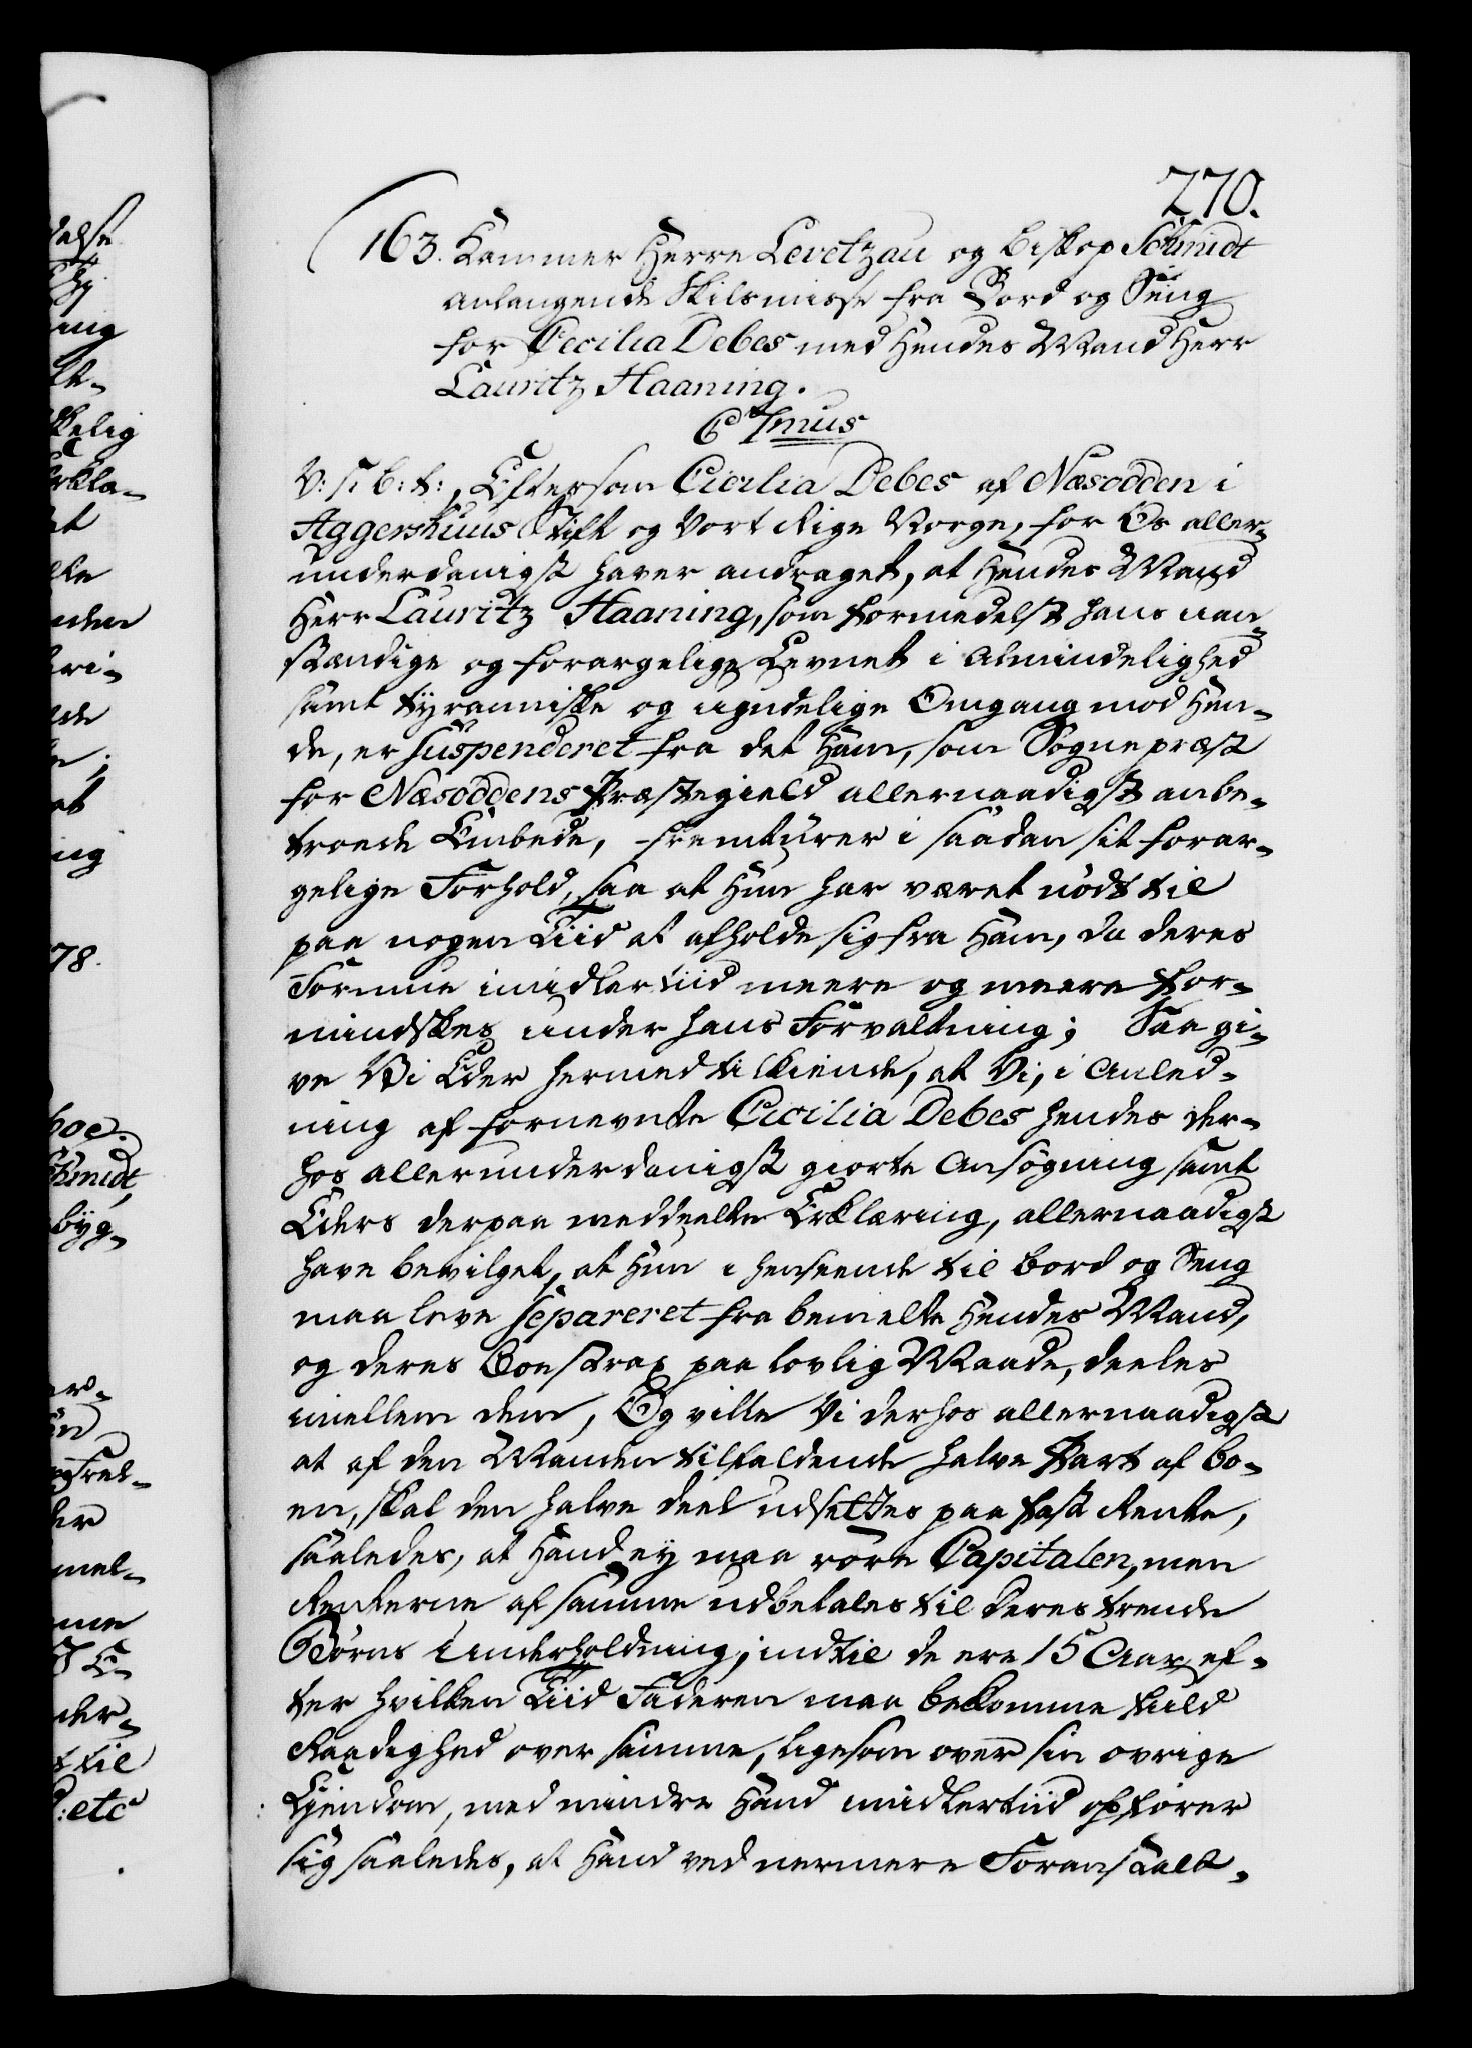 270.
163. Kammer Herre Levetzau og biskop Schmidt
anlangende Skilsmisse fra Bord og Seng
for Cecilia Debes med Hendes Mand Herr
Lauritz Haaning.
C 7mus
V: s: b: t:, Eftersom Cicilia Debes af Næsodden i
Aggershuus Stift og Vort Rige Norge, for Os aller-
underdanigst haver andraget, at Hendes Mand
Herr Lauritz Haaning, som formedelst hans uan-
stændige og forargelige Levnet i Almindelighed
samt tyranniske og ugudelige Omgang mod Hen-
de, er suspenderet fra det Ham, som Sognepræst
for Næsoddens Præstegield allernaadigst anbe-
troede Embede, fremturer i saadan sit forar-
gelige Forhold, saa at Hun har været nødt til
paa nogen Tiid at afholde sig fra Ham, da deres
Formue imidlertiid meere og meere for-
mindskes under hans Forvaltning; Saa gi-
ve Vi Eder hermed tilkiende, at Vi, i Anled-
ning af fornevnte Cicilia Debes hendes der-
hos allerunderdanigst giorte Ansøgning samt
Eders derpaa meddeelte Erklæring, allernaadigst
have bevilget, at Hun i henseende til bord og Seng
maa leve separeret fra bemelte Hendes Mand,
og deres Boe strax paa lovlig Maade, deeles
imellem dem, Og ville Vi derhos allernaadigst
at af den Manden tilfaldende halve Part af bo-
en, skal den halve deel udsettes paa fast Rente,
saaledes, at Hand ey maa røre Capitalen, men
Renterne af samme udbetales til deres trende
Børns Underholdning, indtil de ere 15 Aar, ef-
ter hvilken Tiid Faderen maa bekomme fuld
Raadighed over samme, ligesom over sin øvrige
Ejendom, med mindre Hand imidlertiid opfører
sig saaledes, at Hand ved nermere Foranstalt-